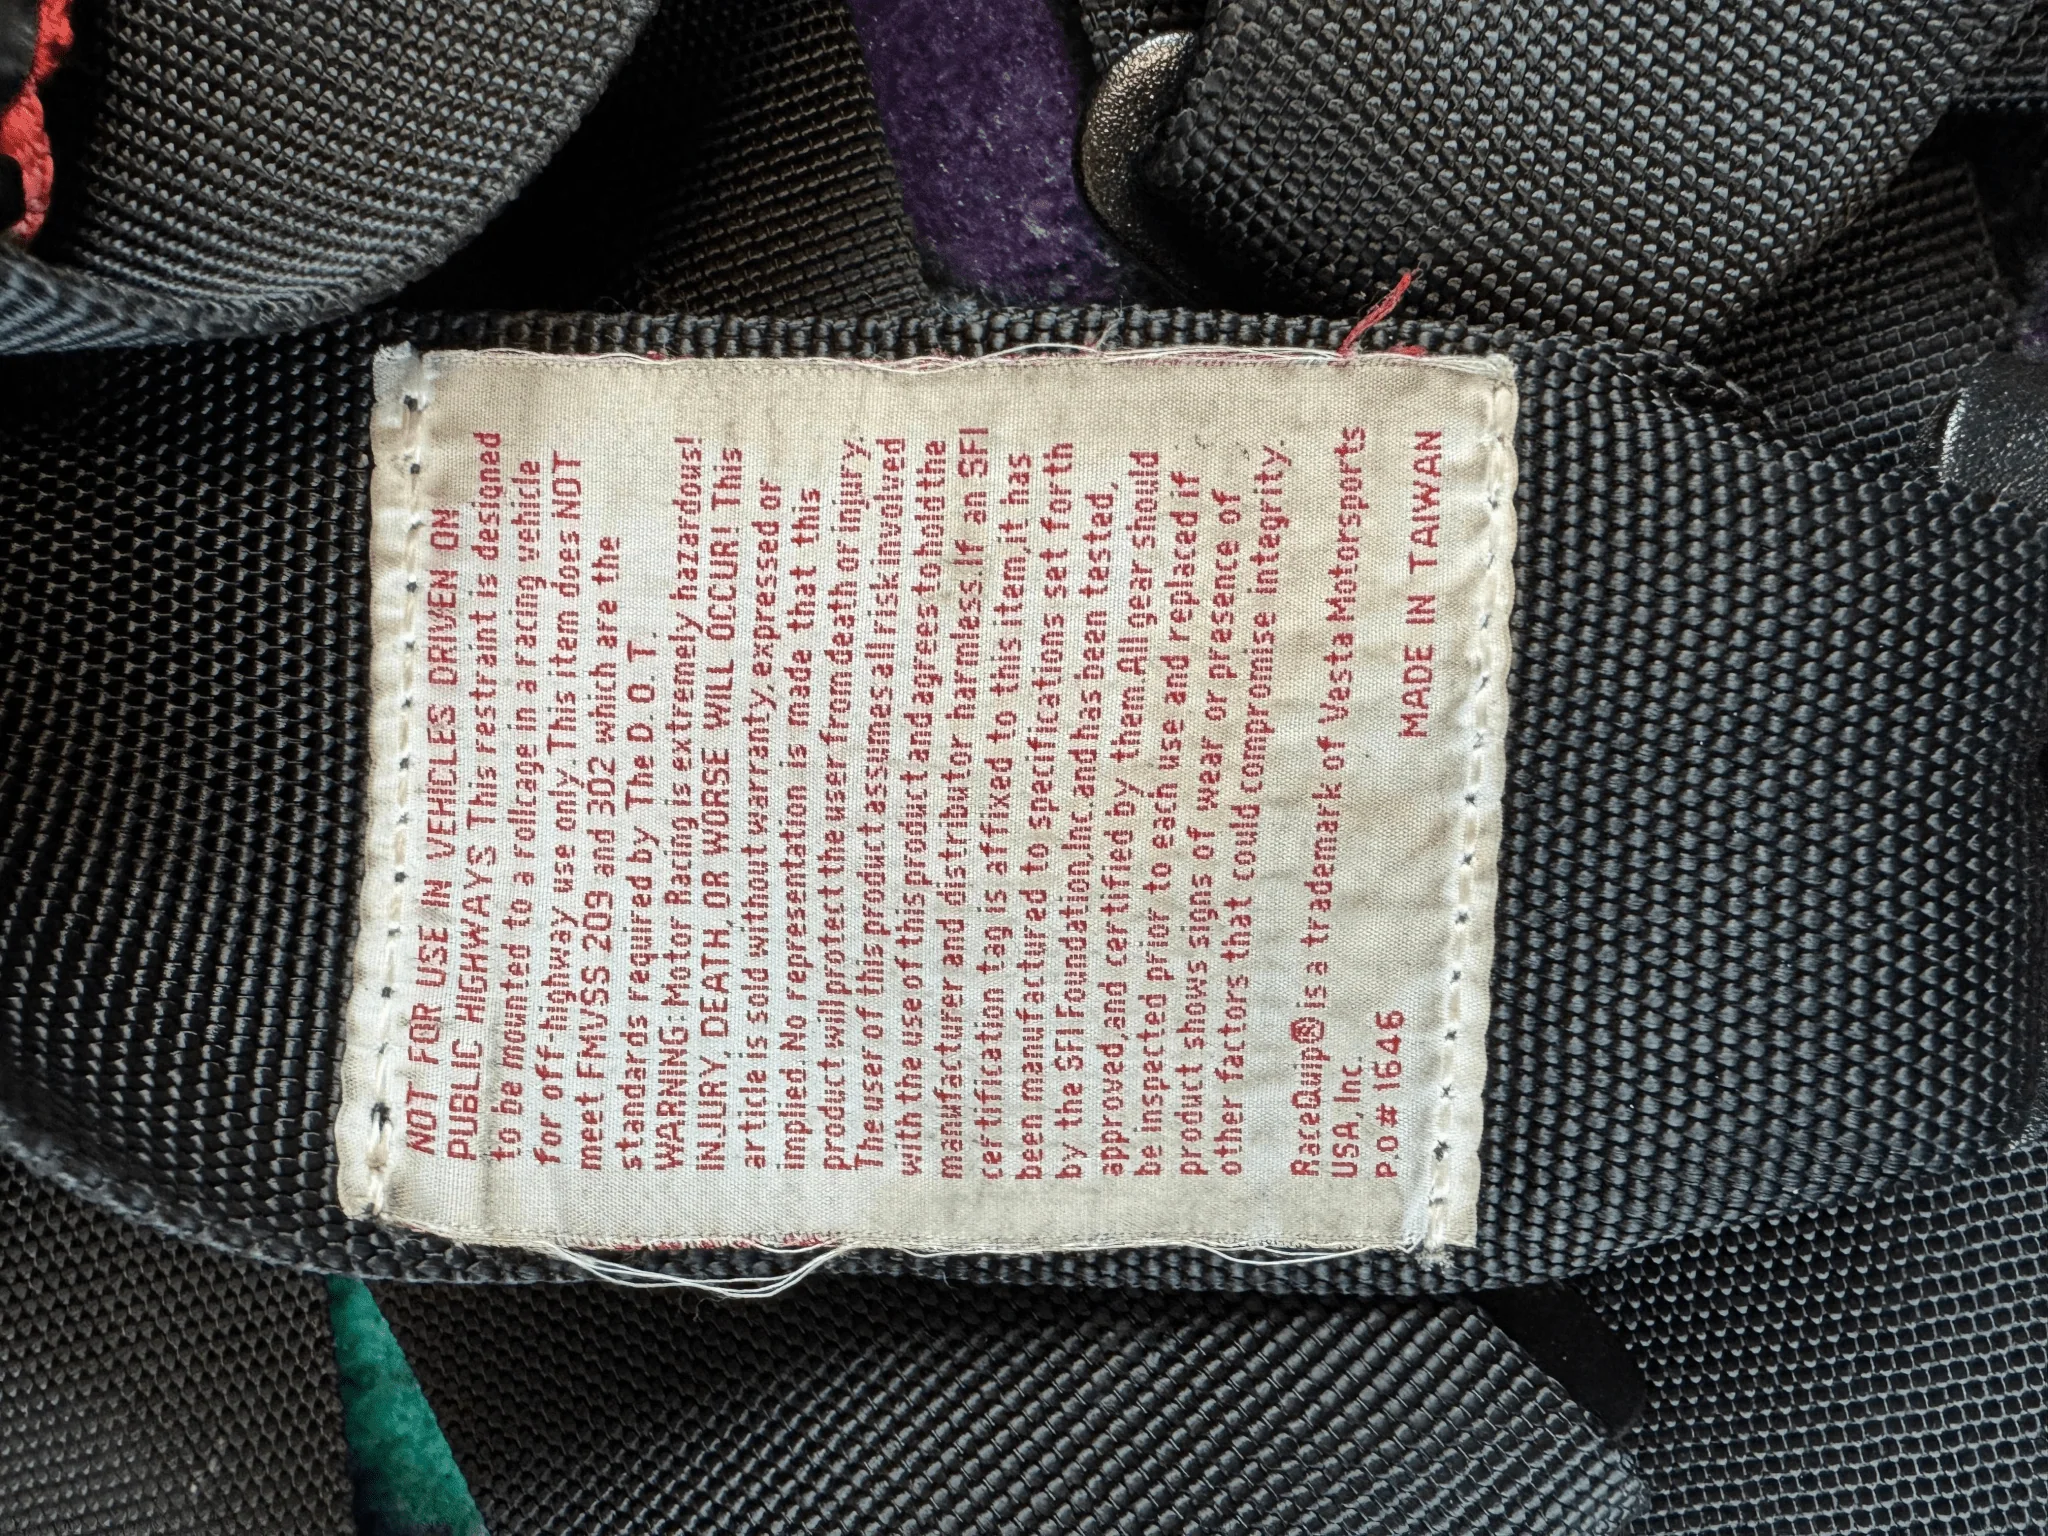 NOT FOR USE IN VEHICLES DRIVEN ON
PUBLIC HIGHWAYS This restraint is designed
to be mounted to a rollcage in a racing vehicle
for off-highway use only. This item does NOT
meet FMVSS 209 and 302 which are the
standards required by The D.O.T.
WARNING: Motor Racing is extremely hazardous!
INJURY, DEATH, OR WORSE WILL OCCUR! This
article is sold without warranty, expressed or
implied. No representation is made that this
product will protect the user from death or injury.
The user of this product assumes all risk involved
with the use of this product and agrees to hold the
manufacturer and distributor harmless. If an SFI
certification tag is affixed to this item, it has
been manufactured to specifications set forth
by the SFI Foundation, Inc. and has been tested,
approved, and certified by them. All gear should
be inspected prior to each use and replaced if
product shows signs of wear or presence of
other factors that could compromise integrity.
RaceQuip® is a trademark of Vesta Motorsports
USA, Inc.
P.O# 1646 MADE IN TAIWAN